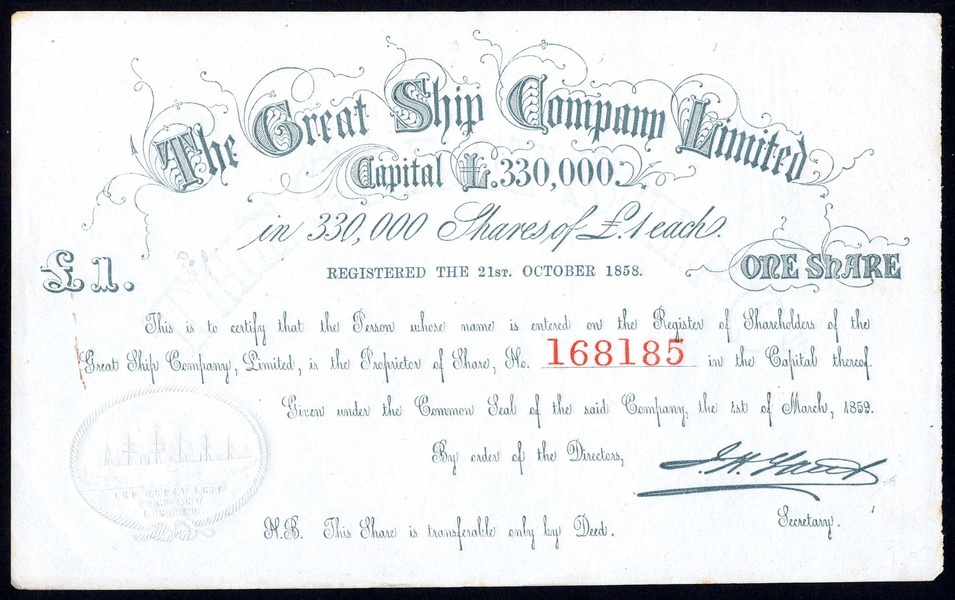 The Great Ship Company Limited
Capital £.330,000.
in 330,000 Shares of £.1 each.
REGISTERED THE 21ST. OCTOBER 1858.
£1.
ONE SHARE
This is to certify that the Person whose name is entered on the Register of Shareholders of the
Great Ship Company, Limited, is the Proprietor of Share, No. 168185 in the Capital thereof.
Given under the Common Seal of the said Company, the 1st of March, 1859.
By order of the Directors,
Secretary.
THE GREAT SHIP
COMPANY
LIMITED
N.B. This Share is transferable only by Deed.